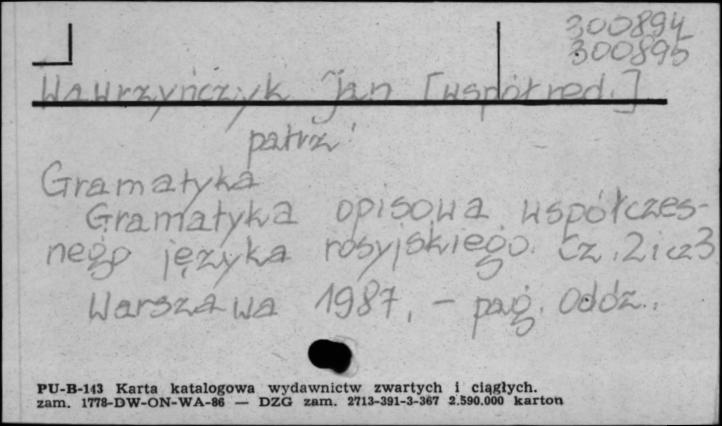 300894
300895
Wawrzyńczyk Jan [współred.]
patrz:
Gramatyka
Gramatyka opisowa współczes-
nego języka rosyjskiego. Cz. 2 i cz 3
Warszawa 1987, - pag. oddz.
PU-B-143 Karta katalogowa wydawnictw zwartych i ciągłych.
zam. 1778-DW-ON-WA-86 — DZG zam. 2713-391-3-367 2.590.000 karton